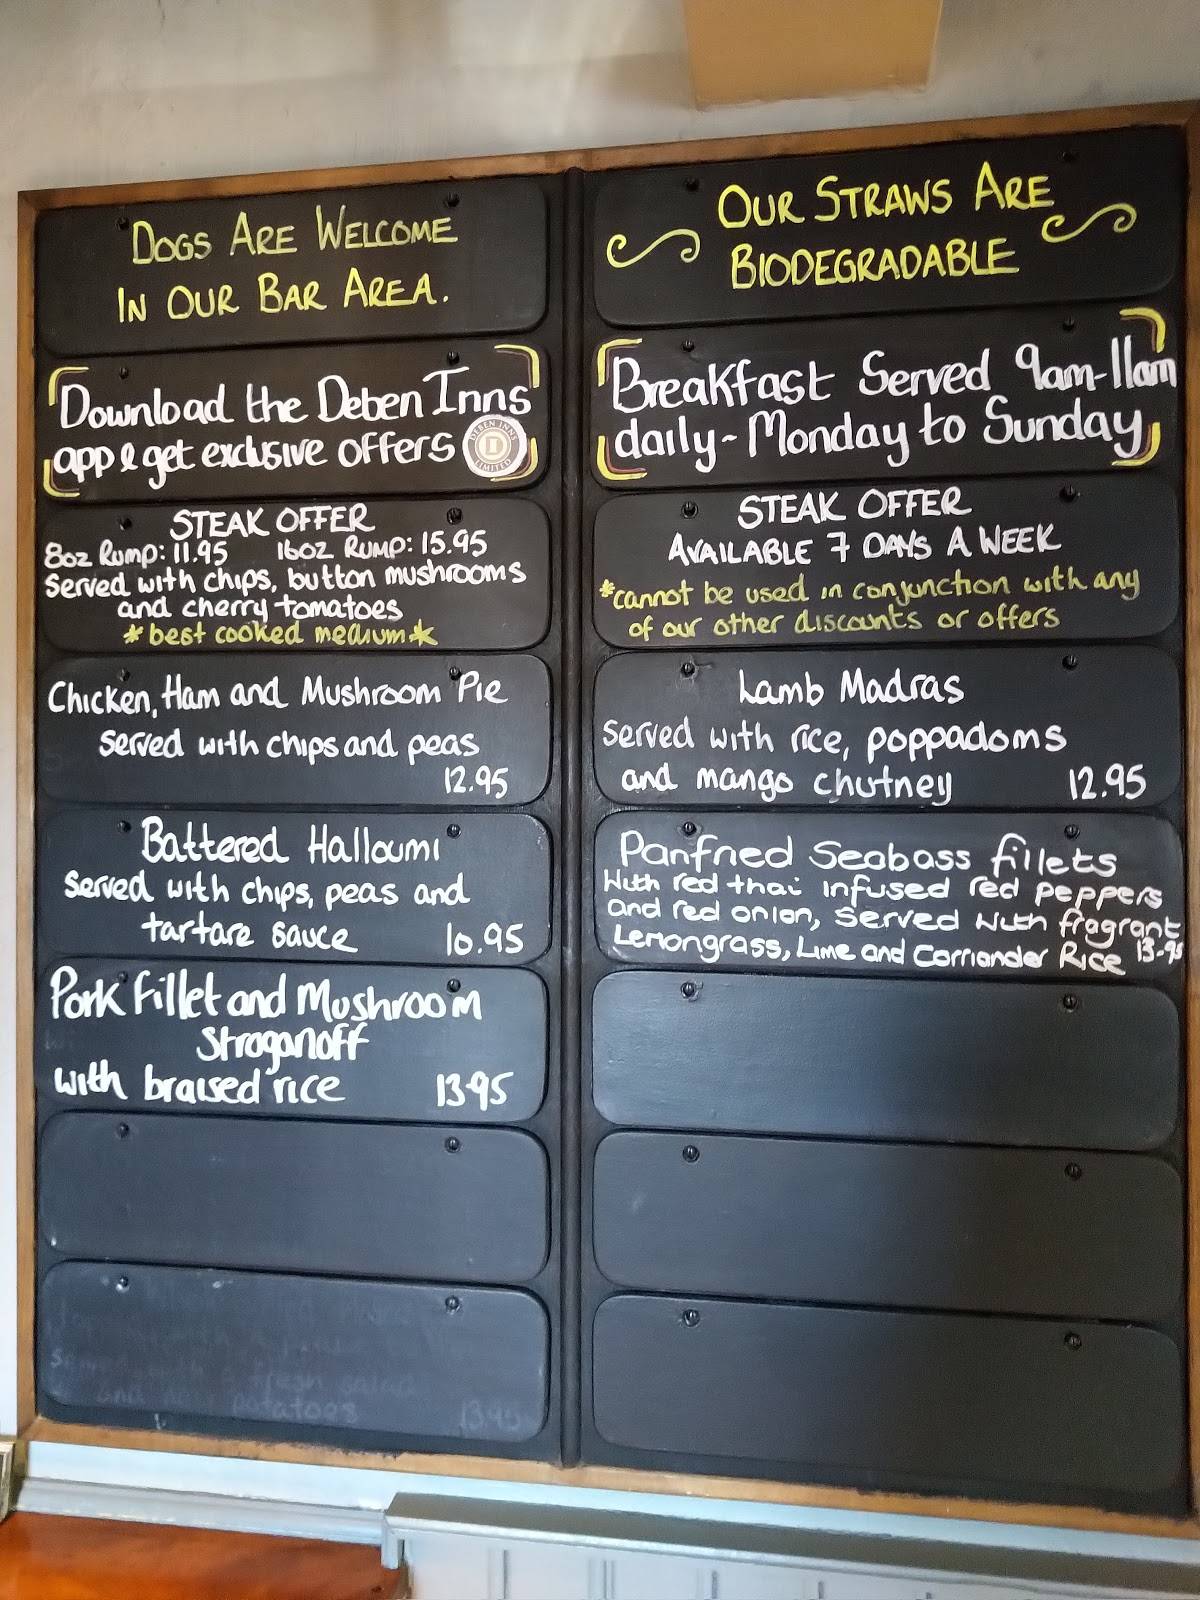 DOGS ARE WELCOME
IN OUR BAR AREA.
Download the Deben Inns
app & get exclusive offers
DEBEN INNS
D
LIMITED
STEAK OFFER
8oz Rump: 11.95 16oz Rump: 15.95
Served with chips, button mushrooms
and cherry tomatoes
*best cooked medium*
Chicken, Ham and Mushroom Pie
served with chips and peas
12.95
Battered Halloumi
Served with chips, peas and
tartare sauce 10.95
Pork fillet and Mushroom
Stroganoff
with braised rice 13.95
served with a fresh salad
and new potatoes 13.95
OUR STRAWS ARE
BIODEGRADABLE
Breakfast Served 9am-11am
daily - Monday to Sunday
STEAK OFFER
AVAILABLE 7 DAYS A WEEK
*cannot be used in conjunction with any
of our other discounts or offers
Lamb Madras
served with rice, poppadoms
and mango chutney 12.95
Panfried Seabass fillets
With red thai infused red peppers
and red onion, served with fragrant
Lemongrass, Lime and Corriander Rice 13.95